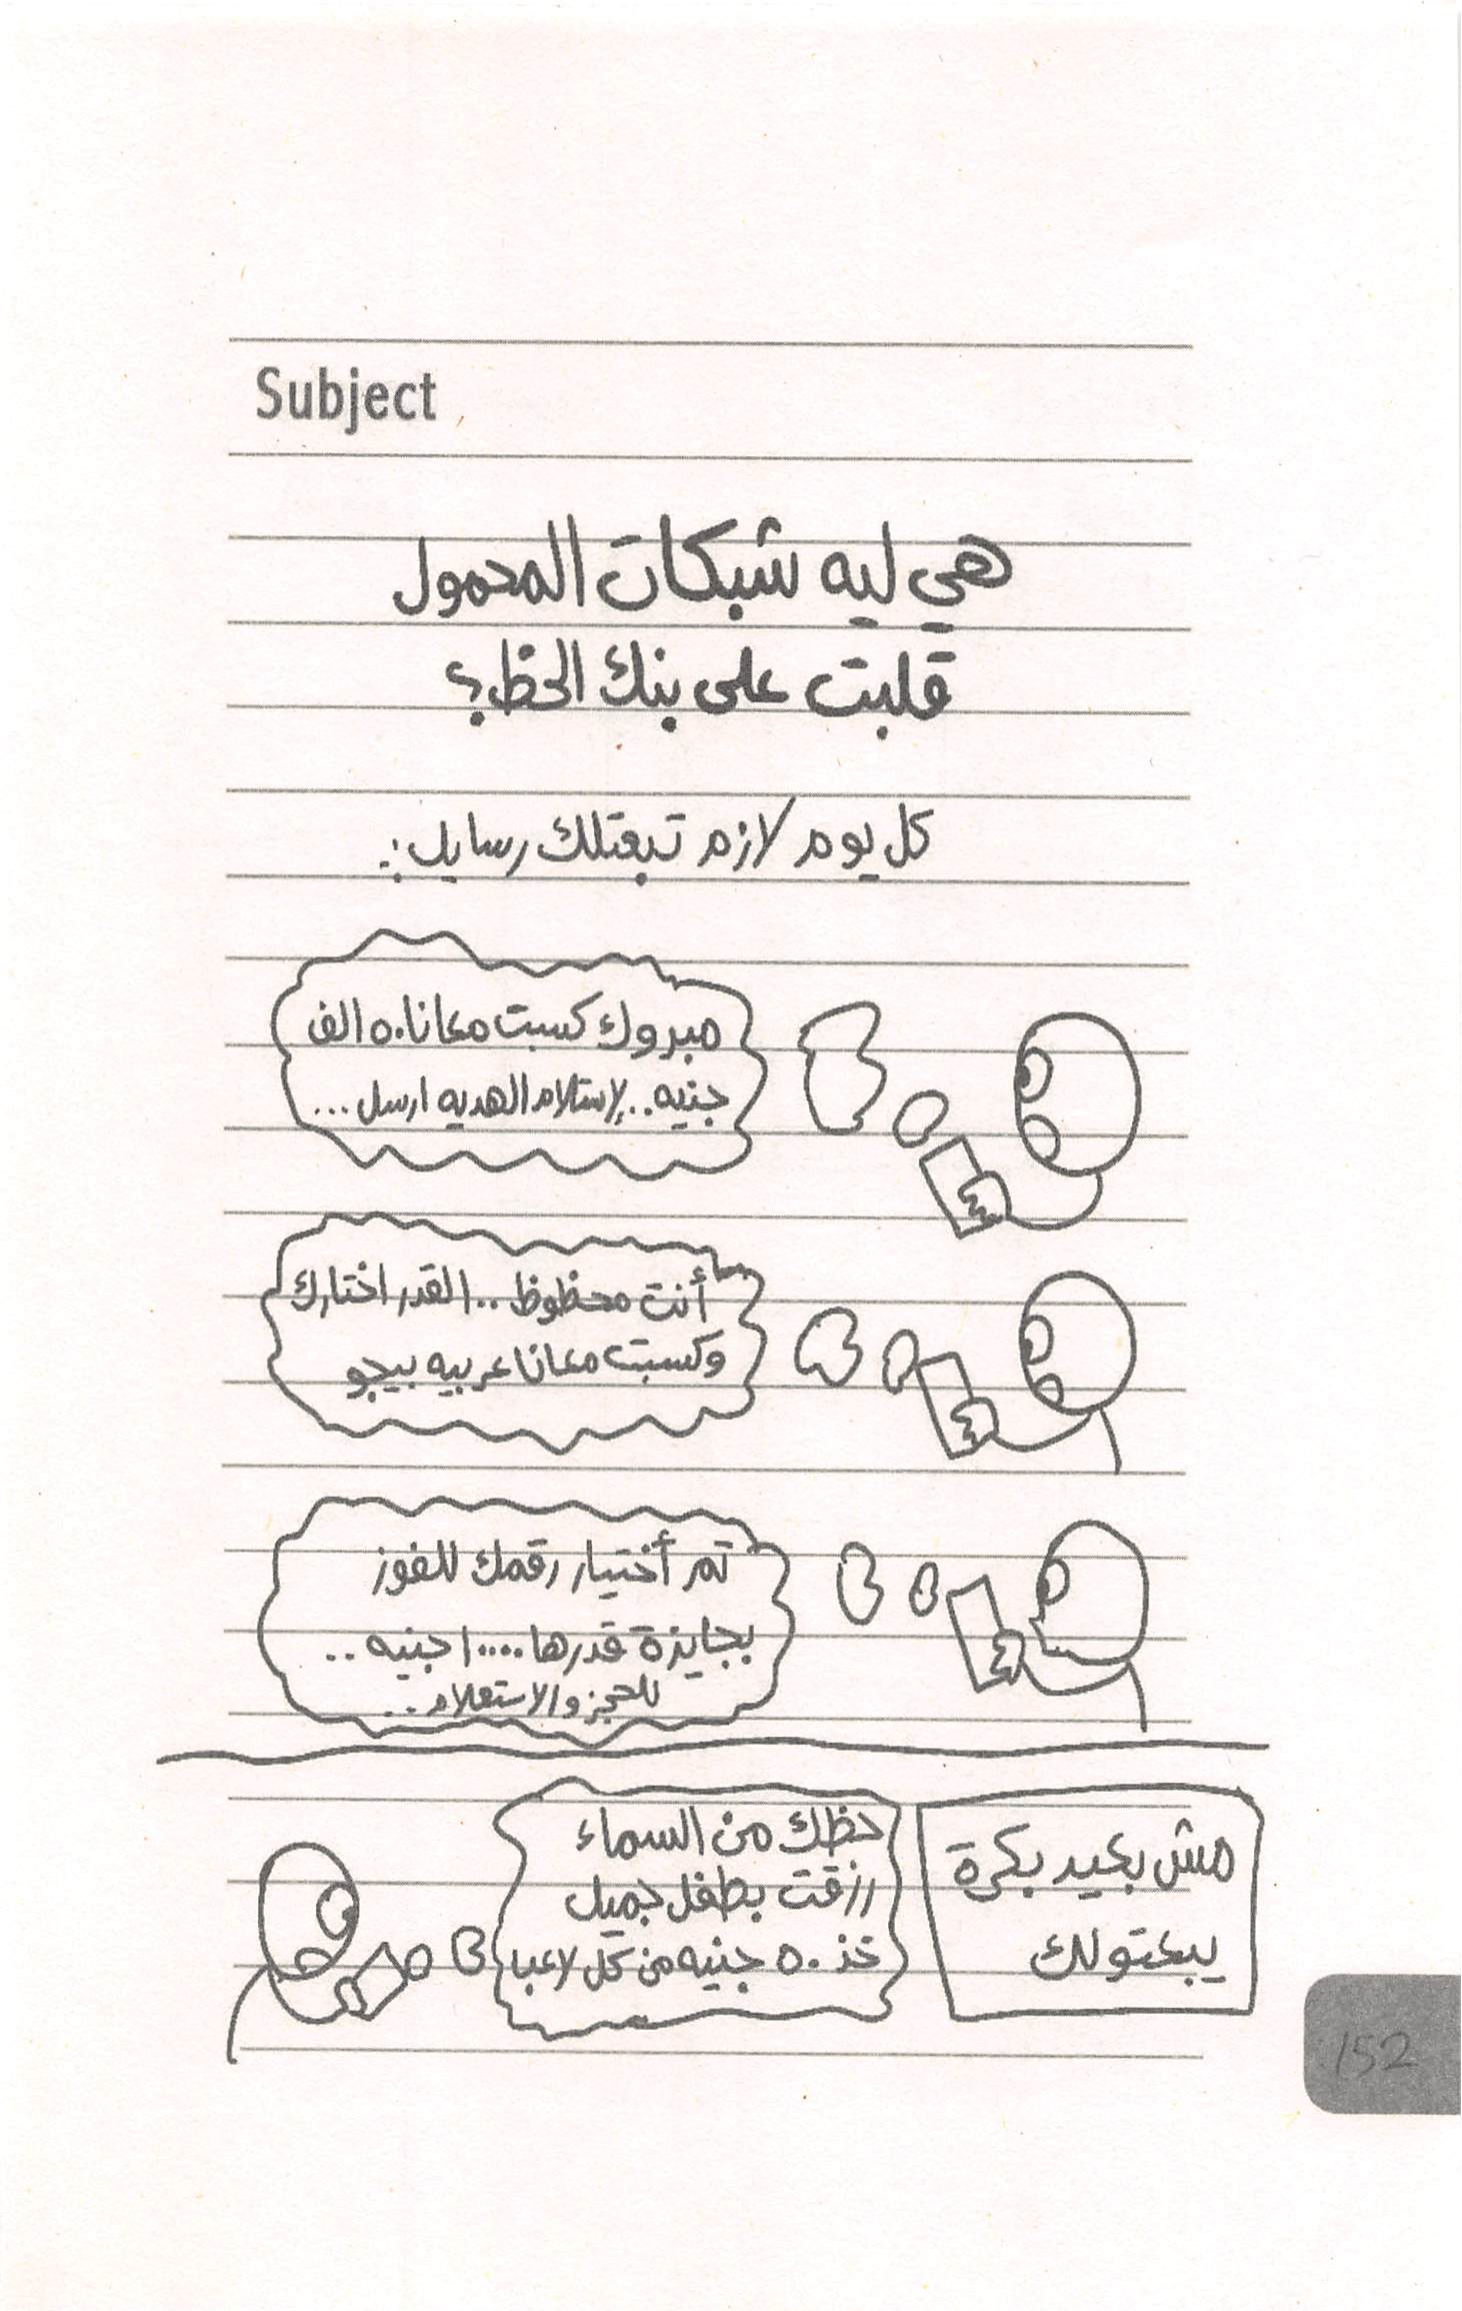 Subject
هي ليه شبكات المحمول
قلبت على بنك الحظ؟
كل يوم لازم تبعتلك رسايل:
مبروك كسبت معانا ٥٠ الف
جنيه.. لإستلام الهديه ارسل ...
أنت محظوظ .. القدر اختارك
وكسبت معانا عربيه بيجو
تم أختيار رقمك للفوز
بجايزة قدرها ١٠٠٠٠ جنيه ..
للحجز والاستعلام ..
مش بعيد بكرة
يبعتولك
حظك من السماء
رزقت بطفل جميل
خذ ٥٠ جنيه من كل لاعب
152